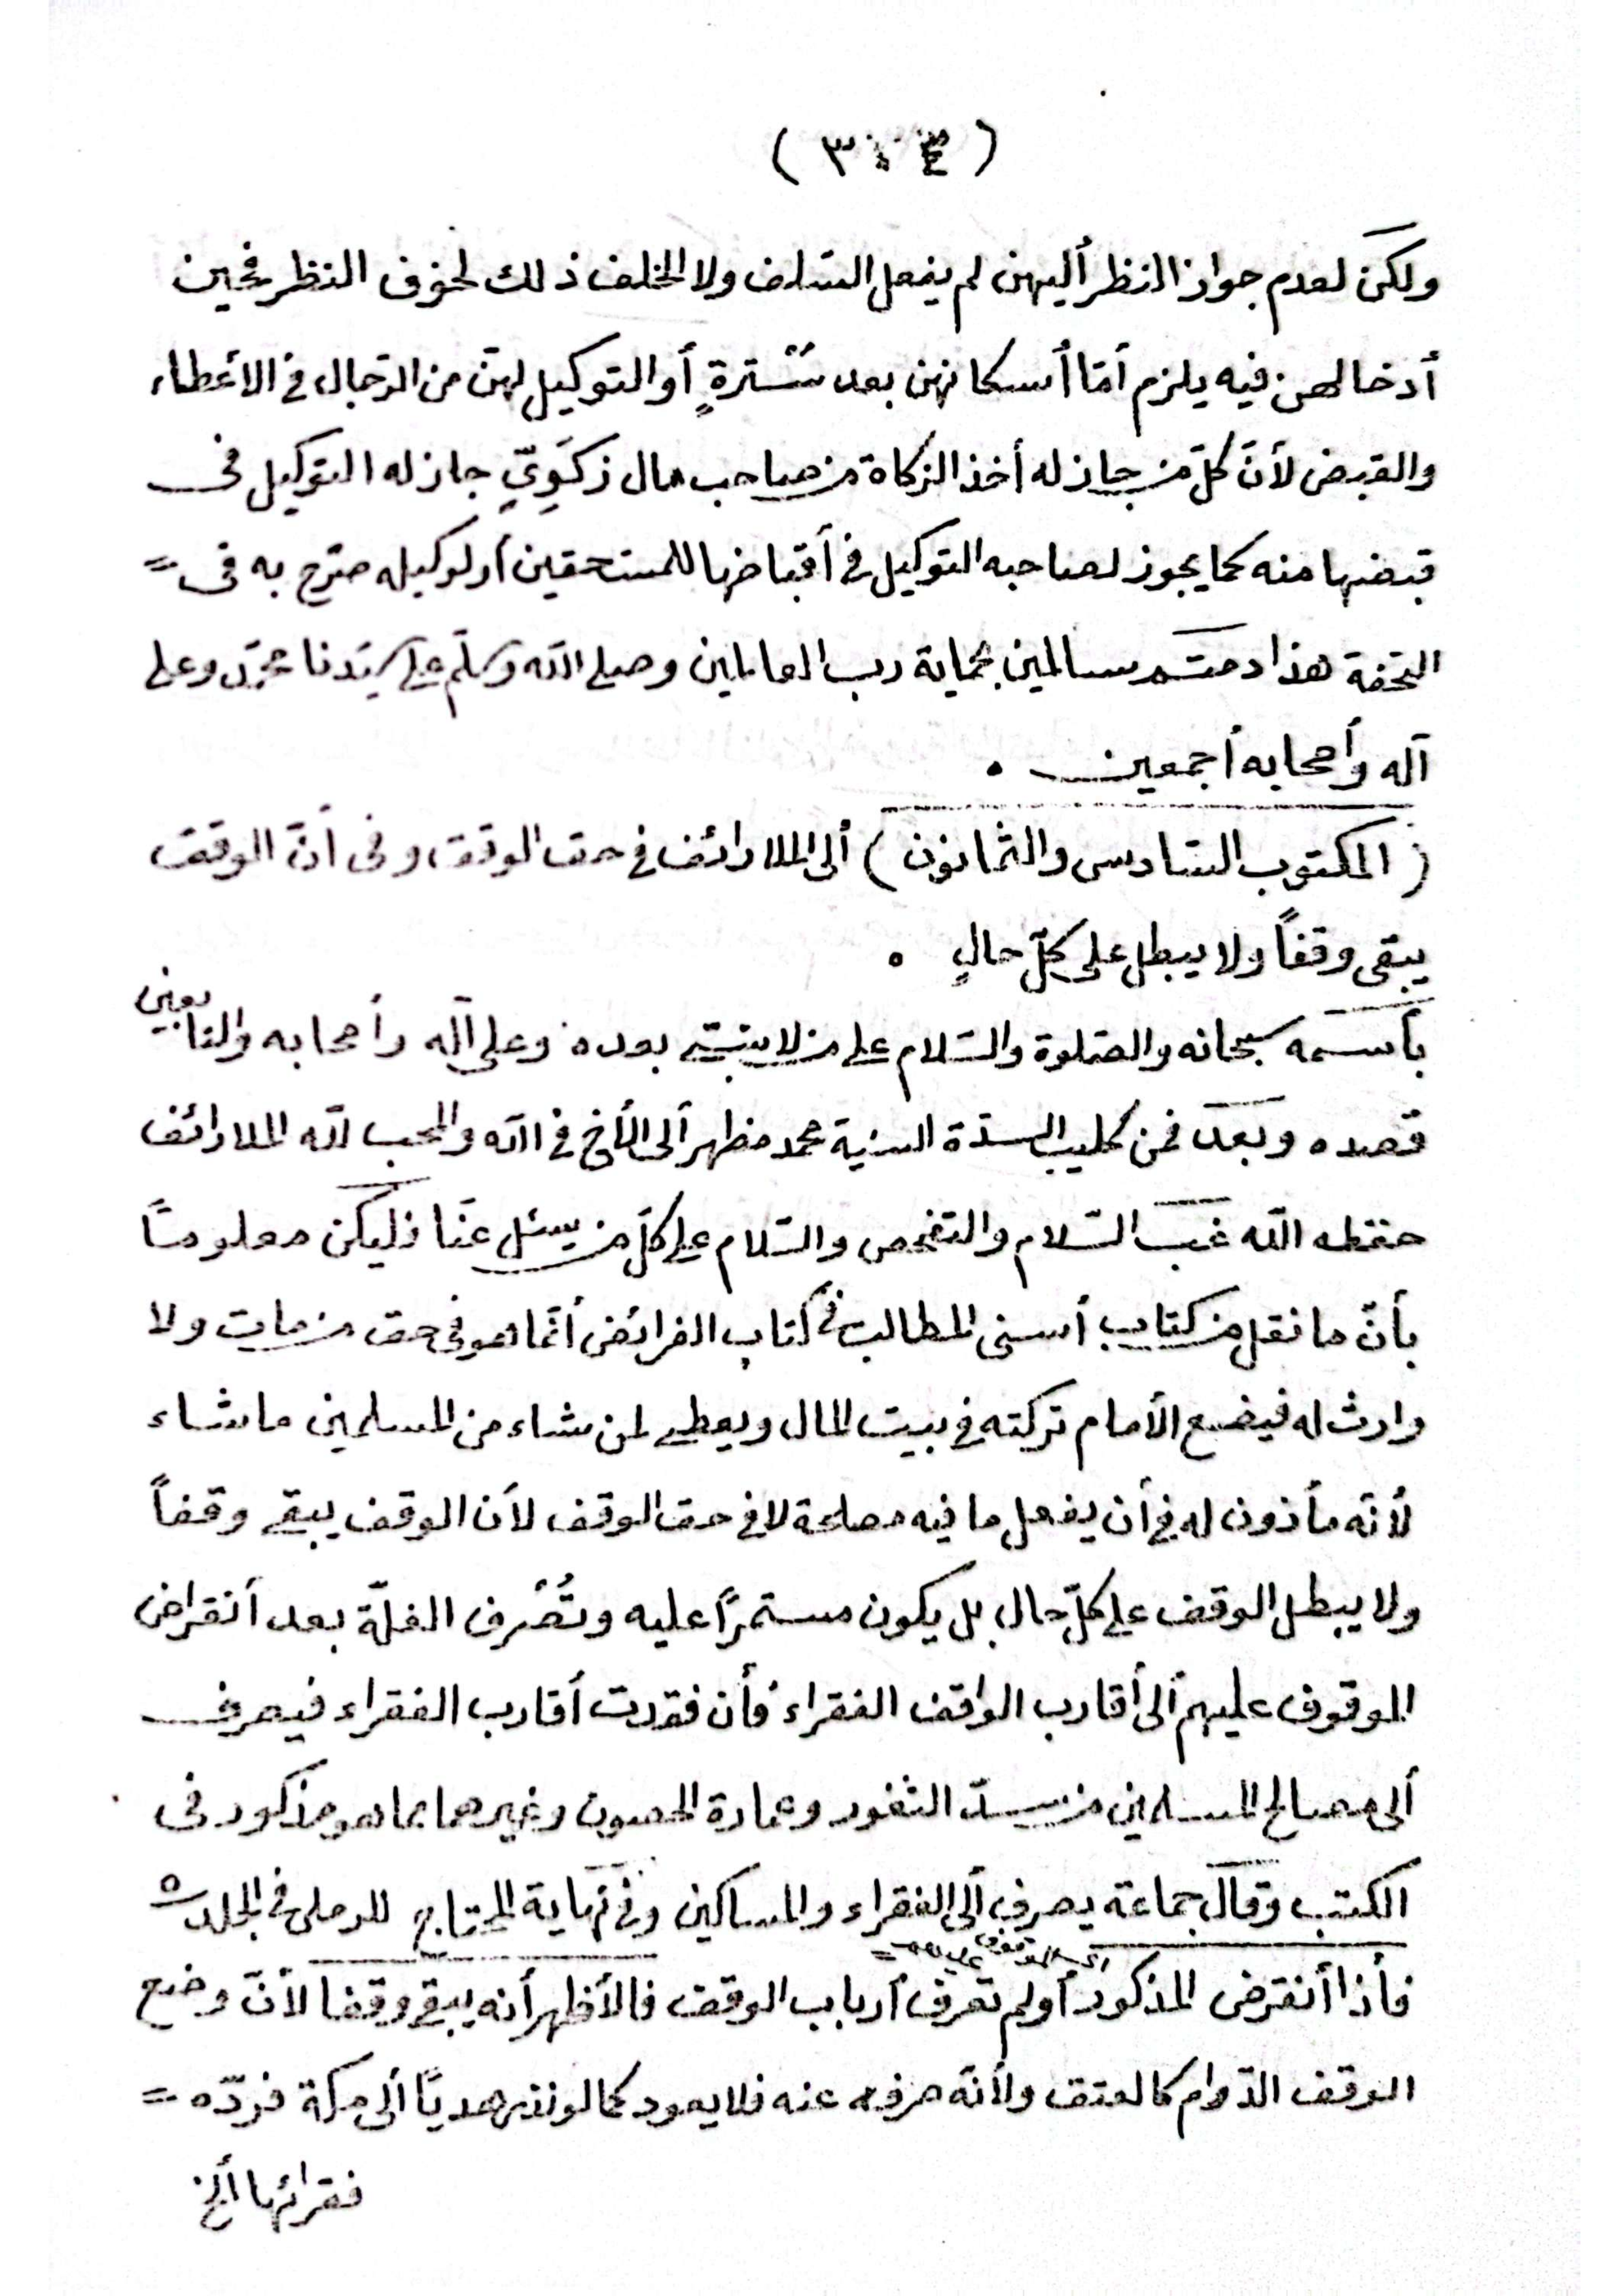 ( ٣٠٤ )
ولكن لعدم جواز النظر أليهن لم يفعل السّلف ولا الخلف ذلك لخوف النظر فحين
أدخالهن فيه يلزم أمّا أسكانهن بعد سُتْرةٍ أو التوكيل لهنّ من الرّجال فى الأعطاء
والقبض لأنّ كلّ من جاز له أخذ الزكاة من صاحب مال زكَوِيّ جاز له التوكيل فى
قبضها منه كما يجوز لصاحبه التوكيل فى أقباضها للمستحقين أو لوكيله صرّح به فى =
التحفة هذا دمتم سالمين بحماية رب العالمين وصلى الله وسلّم على سيّدنا محمّد وعلى
آله وأصحابه أجمعين .
( المكتوب السّادس والثمانون ) ألى الملا رائف فى حق الوقف وفى أنّ الوقف
يبقى وقفاً ولا يبطل على كلّ حالٍ .
بأسمه سبحانه والصّلوة والسّلام على من لا نبيّ بعده وعلى آله وأصحابه والتابعين
قصده وبعد فمن كليب السدّة السنية محمد مظهر ألى الأخ فى الله والمحب لله الملا رائف
حفظه الله غبّ السّلام والتفحص والسّلام على كلّ من يسئل عنّا فليكن معلوماً
بأنّ ما نقل من كتاب أسنى المطالب فى كتاب الفرائض أنّما هو فى حق من مات ولا
وارث له فيضع الأمام تركته فى بيت المال ويعطى لمن شاء من المسلمين ما شاء
لأنّه مأذون له فى أن يفعل ما فيه مصلحة لا فى حق الوقف لأن الوقف يبقى وقفاً
ولا يبطل الوقف على كلّ حال بل يكون مستمرّاً عليه وتُصْرف الغلّة بعد أنقراض
الموقوف عليهم ألى أقارب الواقف الفقراء فأن فقدت أقارب الفقراء فيصرف
ألى مصالح المسلمين من سدّ الثغور وعمارة الحصون وغيرهما مما هو مذكور فى
الكتب وقال جماعة يصرف ألى الفقراء والمساكين وفى نهاية المحتاج للرملى فى الجلد ٥
أى الموقوف عليهم =
فأذا أنقرض المذكور أو لم تعرف أرباب الوقف فالأظهر أنه يبقى وقفا لأنّ وضع
الوقف الدّوام كالعتق ولأنّه صرفه عنه فلا يعود كما لو نذر هدياً ألى مكة فردّه =
فقرائها ألخ